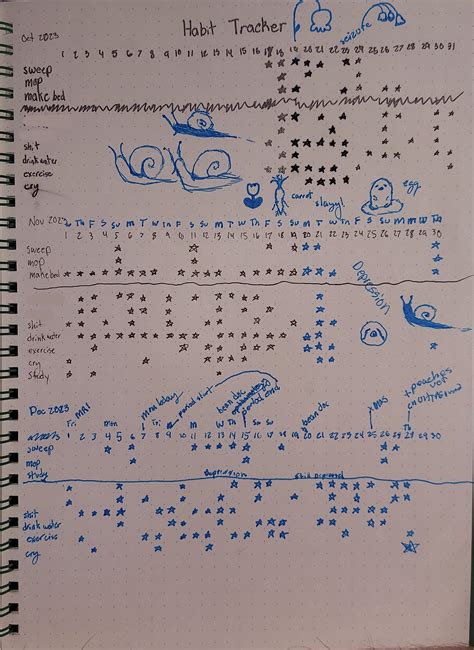 Habit Tracker
Oct 2023
seizure
1 2 3 4 5 6 7 8 9 10 11 12 13 14 15 16 17 18 19 20 21 22 23 24 25 26 27 28 29 30 31
sweep
mop
make bed
shit
drink water
exercise
cry
carrot
slayyy!
egg
Nov 2023
W Th F S Su M T W Th F S Su M T W Th F S Su M T W Th F S Su M T W Th
1 2 3 4 5 6 7 8 9 10 11 12 13 14 15 16 17 18 19 20 21 22 23 24 25 26 27 28 29 30
sweep
mop
make bed
Depression
shit
drink water
exercise
cry
study
Dec 2023
MRI
period start
dental
XMAS
Fri
mon
1 2 3 4 5 6 7 8 9 10 11 12 13 14 15 16 17 18 19 20 21 22 23 24 25 26 27 28 29 30
sweep
mop
study
Depression
Still Depressed
shit
drink water
exercise
cry